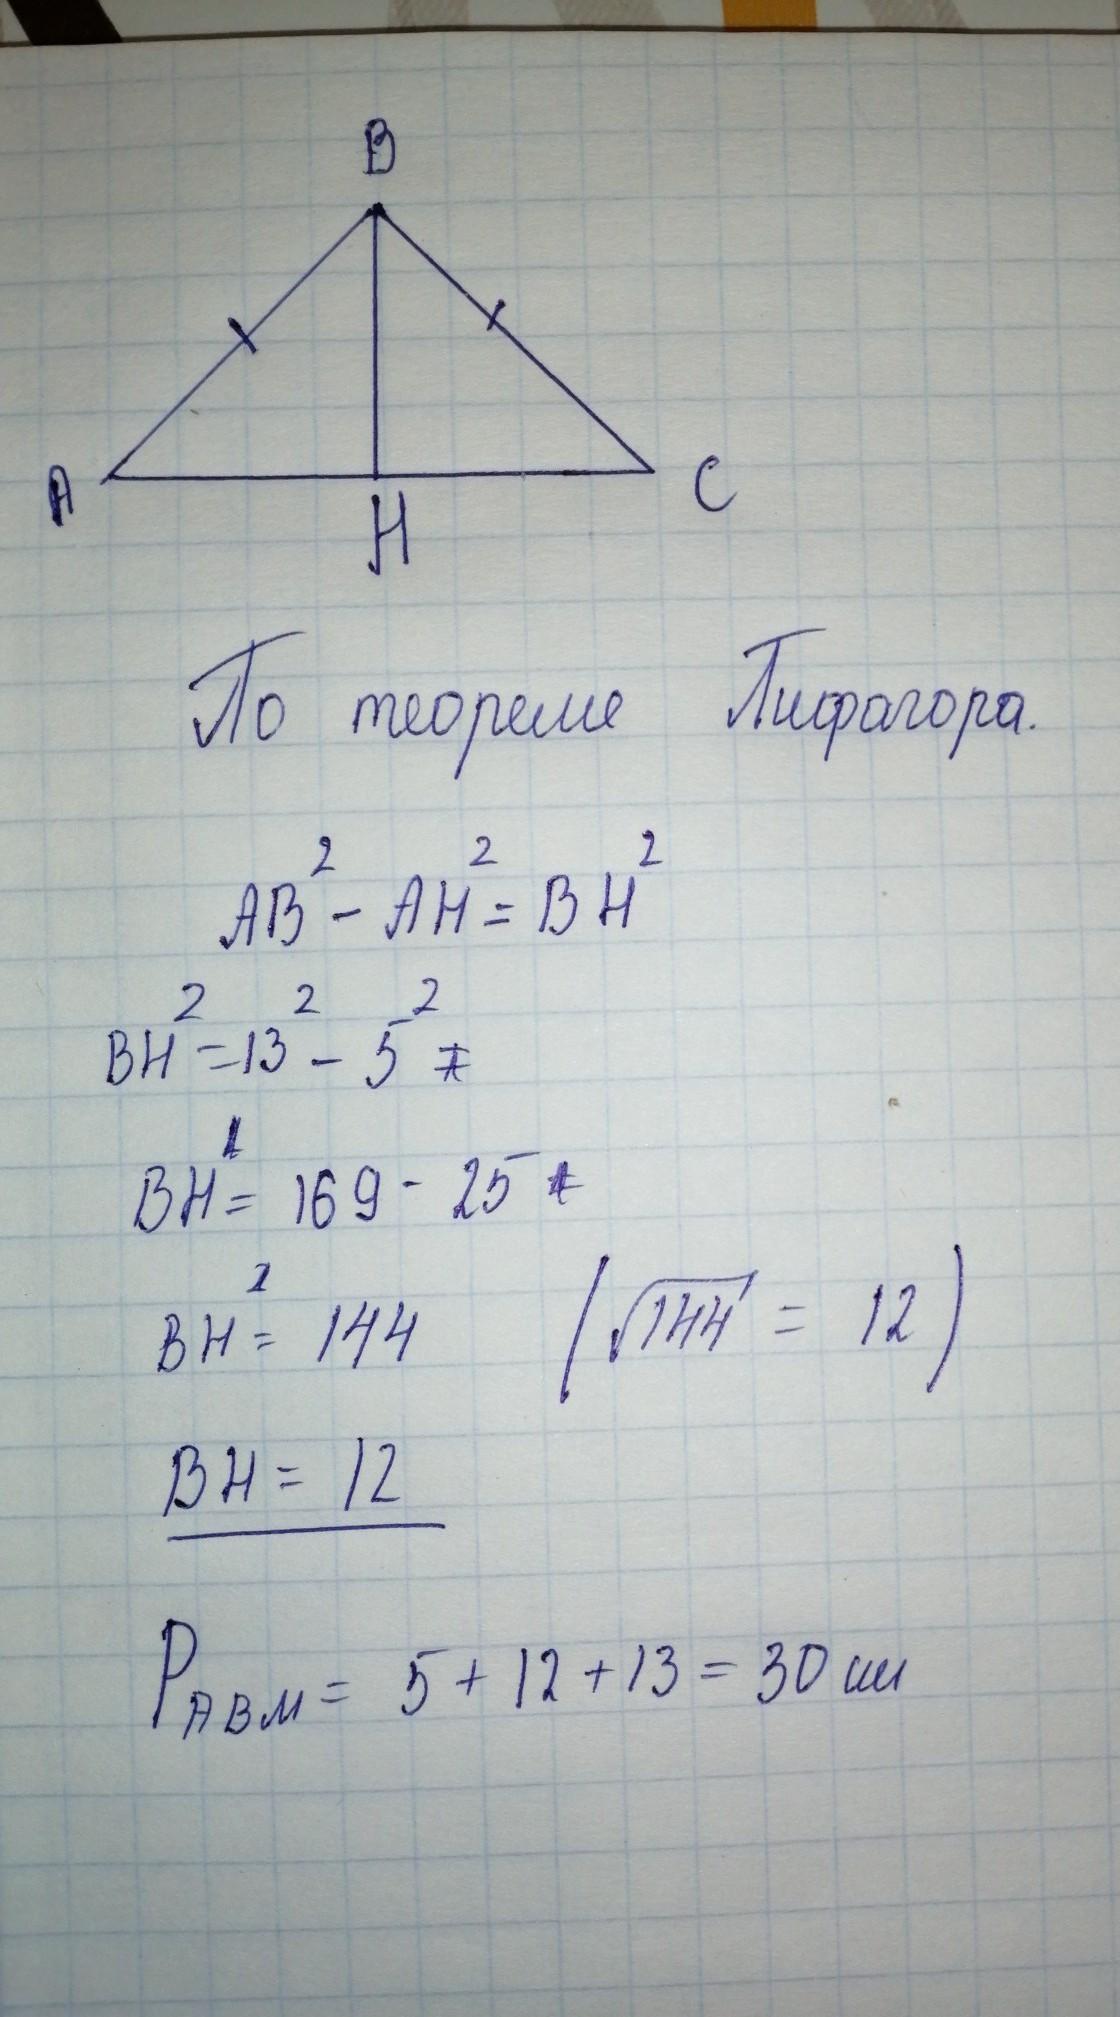 B
A
C
H
По теореме Пифагора.
AB² - AH² = BH²
BH² = 13² - 5²
BH² = 169 - 25
BH² = 144 (√144 = 12)
BH = 12
P ABM = 5 + 12 + 13 = 30 см